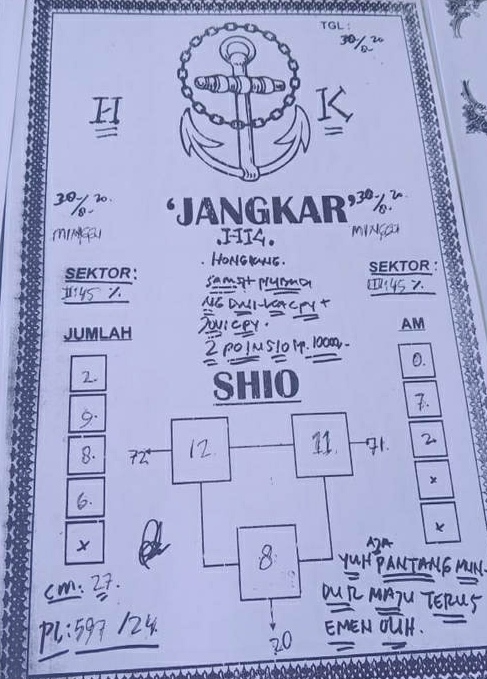 TGL:
30/8-20
H K
30/8-20.
MINGGU
'JANGKAR'
HK.
30/8-20
MINGGU
. HONGKONG.
SEKTOR:
II:45 %
SEKTOR:
III:45 %
2 POINSIO Rp. 1000,-
JUMLAH
2.
9.
8.
6.
x
AM
0.
7.
2.
x
x
SHIO
72 12. 11. 71.
8
20
cm: 27.
PL: 597 / 24.
AJA
YUH PANTANG MUN-
DUR MAJU TERUS
EMEN OUH.